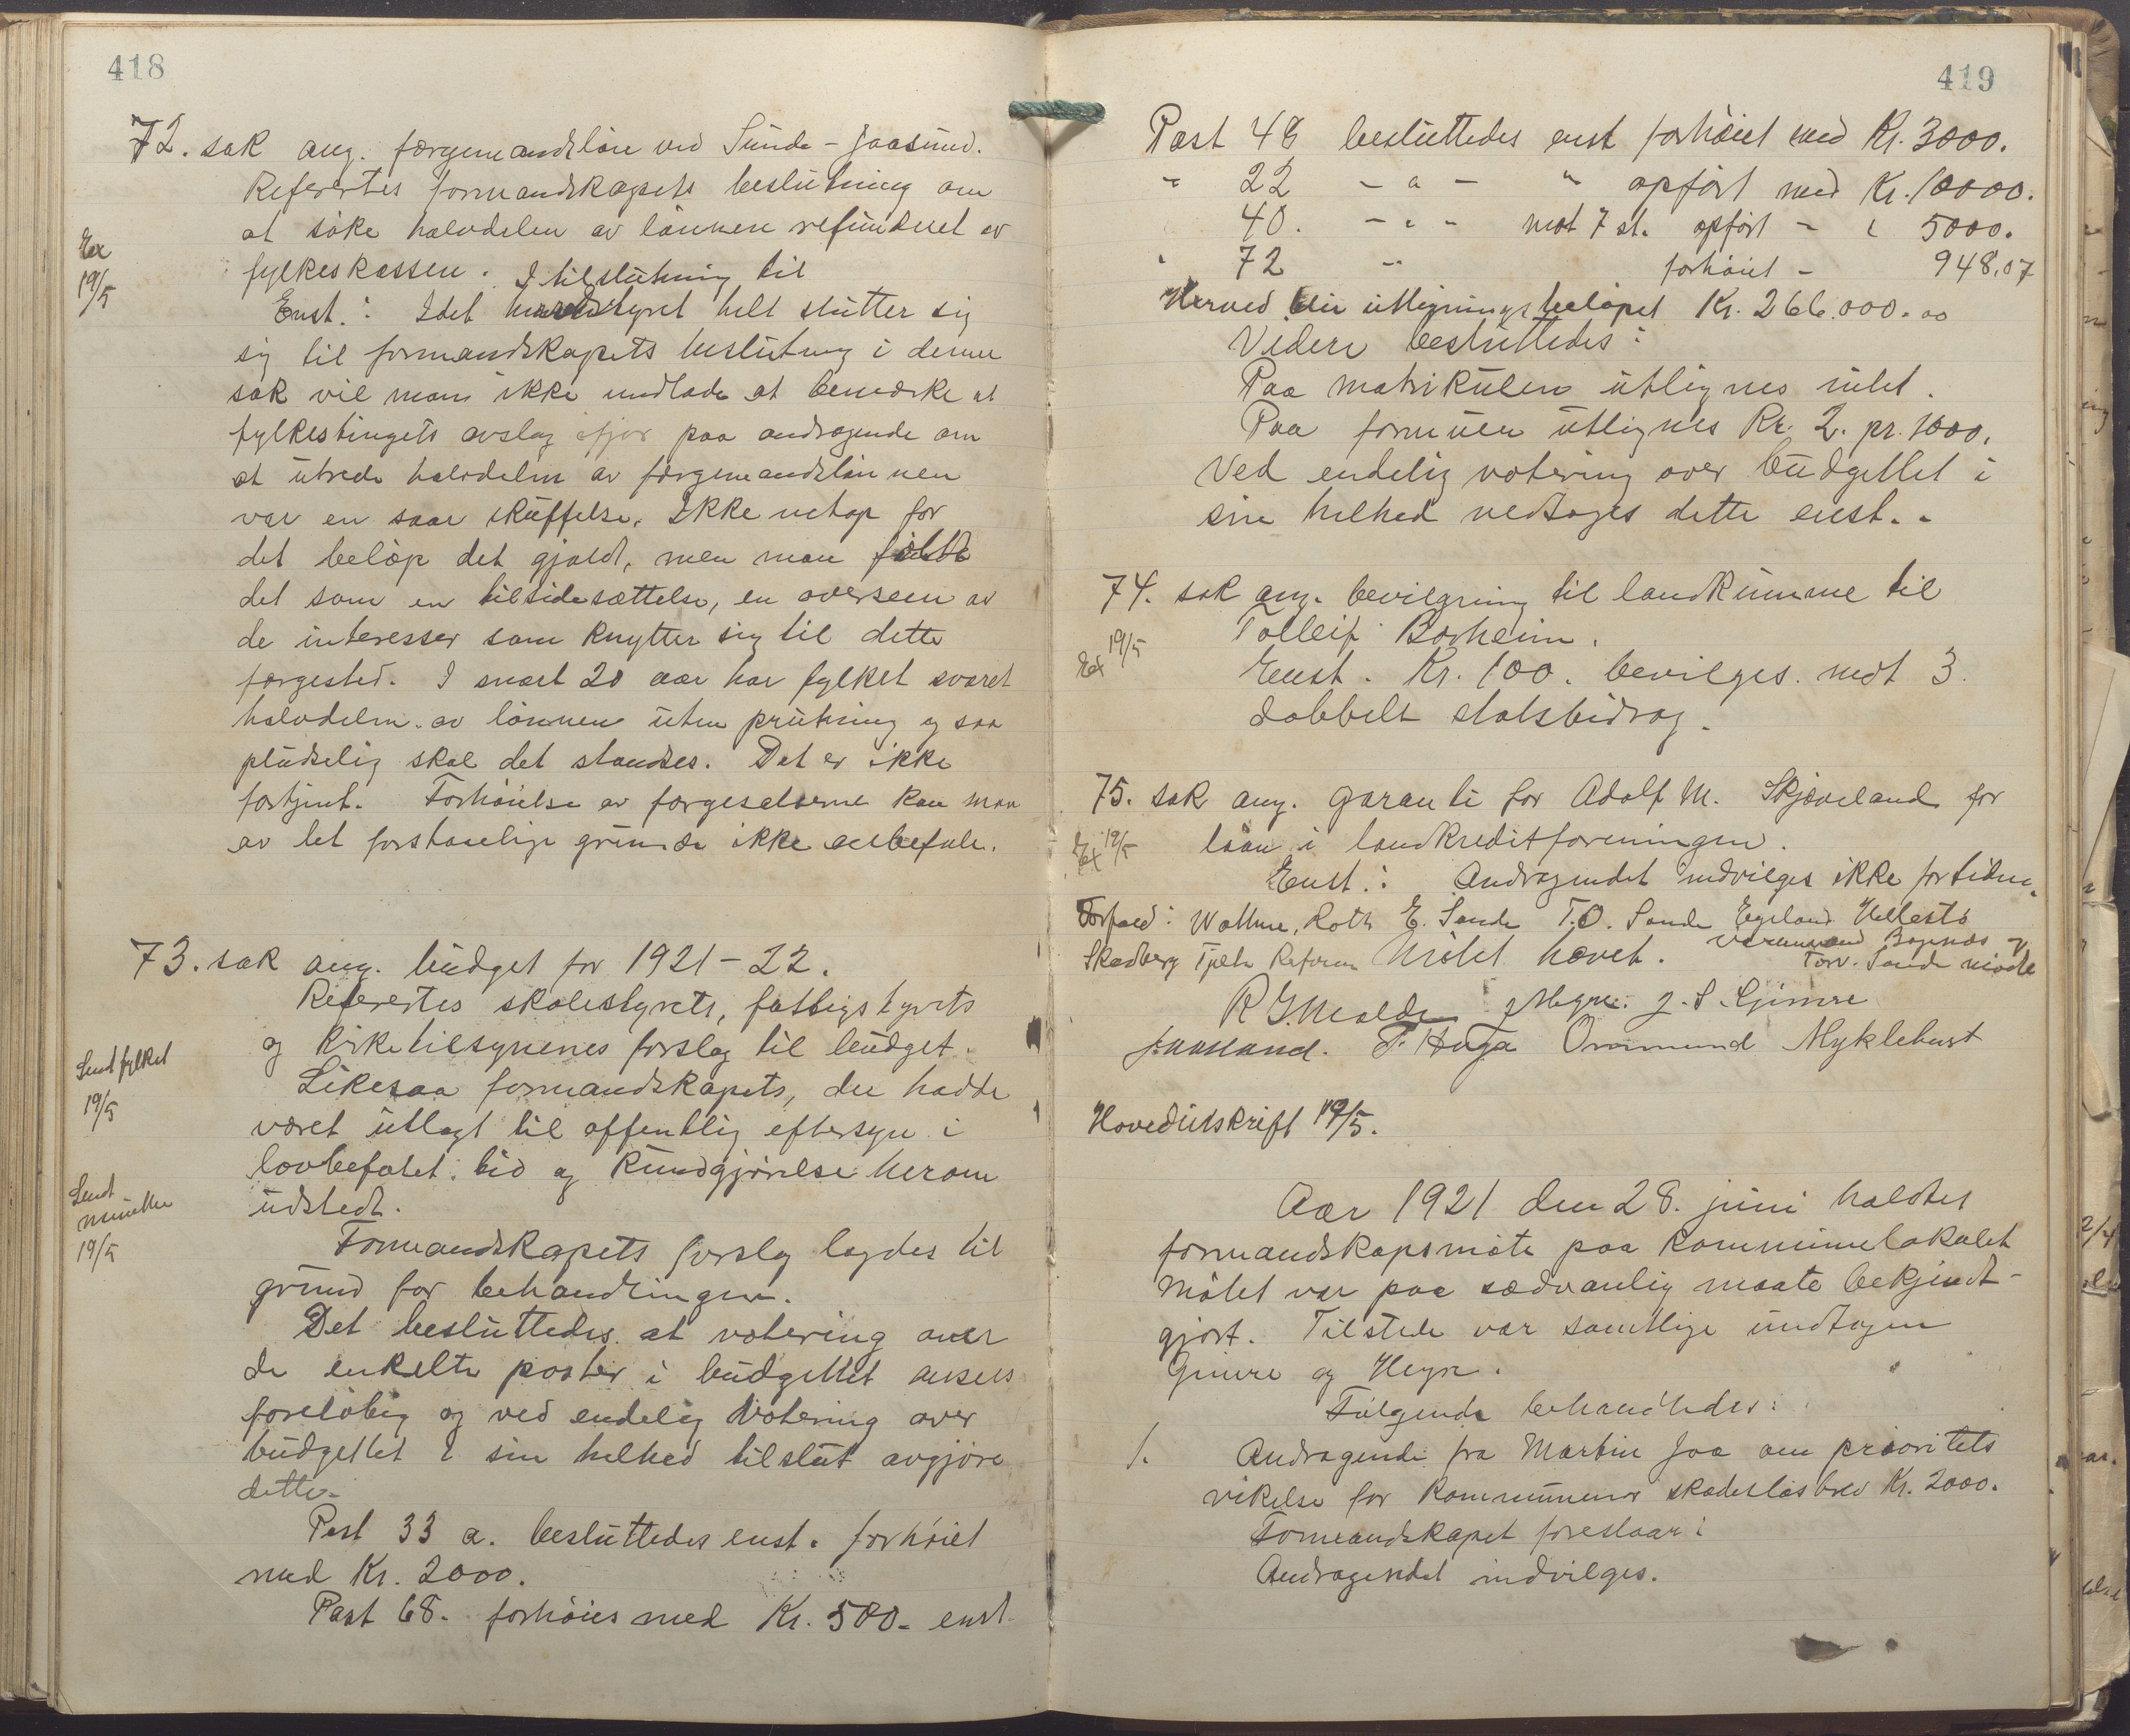 418
72. sak ang. færgemandsløn ved Sunde - Jaasund.
Referertes formandskapets beslutning om
at søke halvdelen av lønnen refundert av
fylkeskassen. I tilslutning til
Ex
19/5
Enst.: Idet herredstyret helt slutter sig
sig til formandskapets beslutning i denne
sak vil man ikke undlade at bemerke at
fylkestingets avslag ifjor paa andragende om
at utrede halvdelen av færgemandslønnen
var en saar skuffelse. Ikke netop for
det beløp det gjaldt, men man følte
det som en tilsidesættelse, en overseen av
de interesser som knytter sig til dette
færgested. I snart 20 aar har fylket svaret
halvdelen av lønnen uten prutning og saa
pludselig skal det standses. Det er ikke
fortjent. Forhøielse av færgesatserne kan man
av let forstaaelige grunde ikke anbefale.
73. sak ang. budget for 1921-22.
Referertes skolestyrets, fattigstyrets
og kirketilsynenes forslag til budget.
Sendt fylket
19/5
Likesaa formandskapets, der hadde
været utlagt til offentlig eftersyn i
lovbefalet tid og kundgjørelse herom
udstedt.
Sendt
19/5
Formandskapets forslag lagdes til
grund for behandlingen.
Det besluttedes at votering over
de enkelte poster i budgettet ansees
foreløbig og ved endelig votering over
budgettet i sin helhed tilslut avgjøre
dette.
Post 33 a. besluttedes enst. forhøiet
med Kr. 2000.
Post 68. forhøies med Kr. 500.- enst.
419
Post 48 besluttedes enst forhøiet med Kr. 3000.
" 22 - " - " opført med Kr. 10000.
40. - " - mot 7 st. opført - " 5000.
" 72 - " forhøiet - 948,07
Herved blir utligningsbeløpet Kr. 266.000.00
Videre besluttedes:
Paa matrikulen utlignes intet.
Paa formuen utlignes Kr. 2. pr. 1000.
Ved endelig votering over budgettet i
sin helhed vedtages dette enst..
74. sak ang. bevilgning til landkumme til
Tolleif Borheim.
19/5
Ex
Enst. Kr. 100. bevilges mot 3
dobbelt statsbidrag.
75. sak ang. garanti for Adolf M. Skjæveland for
laan i landkreditforeningen.
Ex 19/5
Enst.: Andragendet indvilges ikke fortiden.
Forfald: Wathne, Roth E. Sande T.O. Sande Egeland Hellestø
Skadberg Tjelta Reform Møtet hævet. Varamænd Bogenæs og
Torv. Sande møtte
R G. Melde J Meyer. J. S. Gimre
J. Aasland. T. Haga Ommund Myklebust
Hovedutskrift 19/5.
Aar 1921 den 28. juni holdtes
formandskapsmøte paa kommunelokalet
Møtet var paa sædvanlig maate bekjendt-
gjort. Tilstede var samtlige undtagen
Gimre og Meyer.
Følgende behandledes:
1. Andragende fra Martin Jaa om prioritets
vikelse for kommunens skadesløsbrev Kr. 2000.
Formandskapet foreslaar:
Andragendet indvilges.